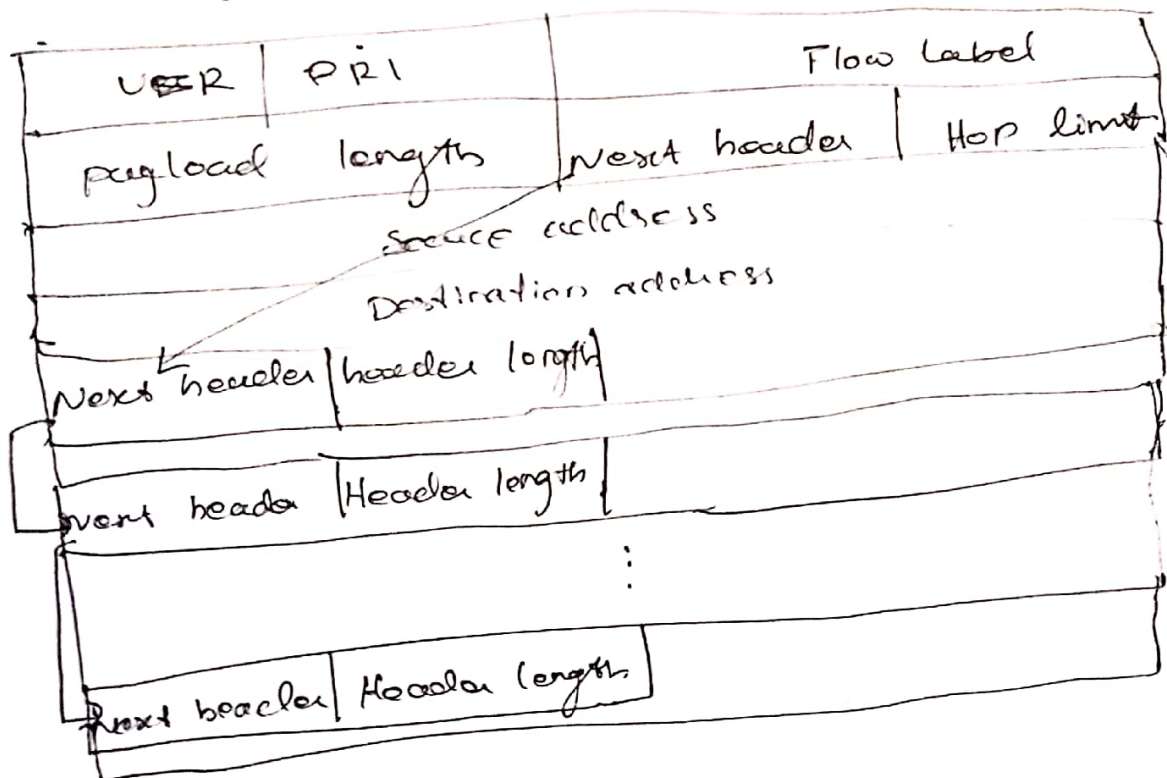 VER PRI Flow Label
payload length Next header Hop limit
Source address
Destination address
Next header header length
Next header Header length
Next header Header length